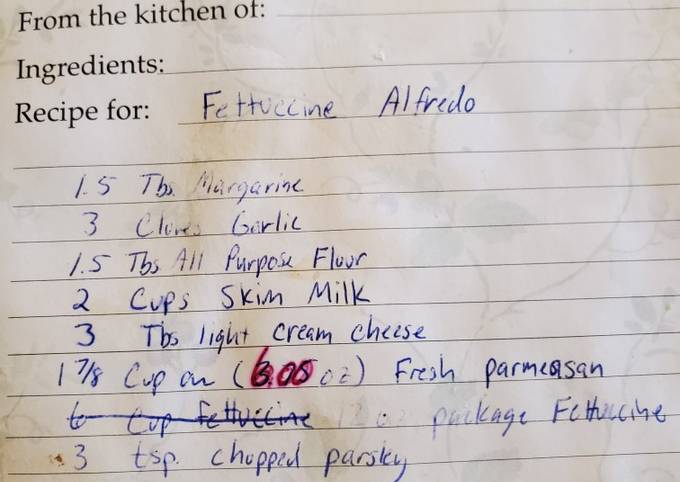 From the kitchen of:
Ingredients:
Recipe for: Fettuccine Alfredo
1.5 Tbs. Margarine
3 Cloves Garlic
1.5 Tbs All Purpose Flour
2 Cups Skim Milk
3 Tbs light cream cheese
1 7/8 Cup or (6.05 oz) Fresh parmeasan
6 Cup fettuccine 12 oz package Fettuccine
3 tsp. chopped parsley